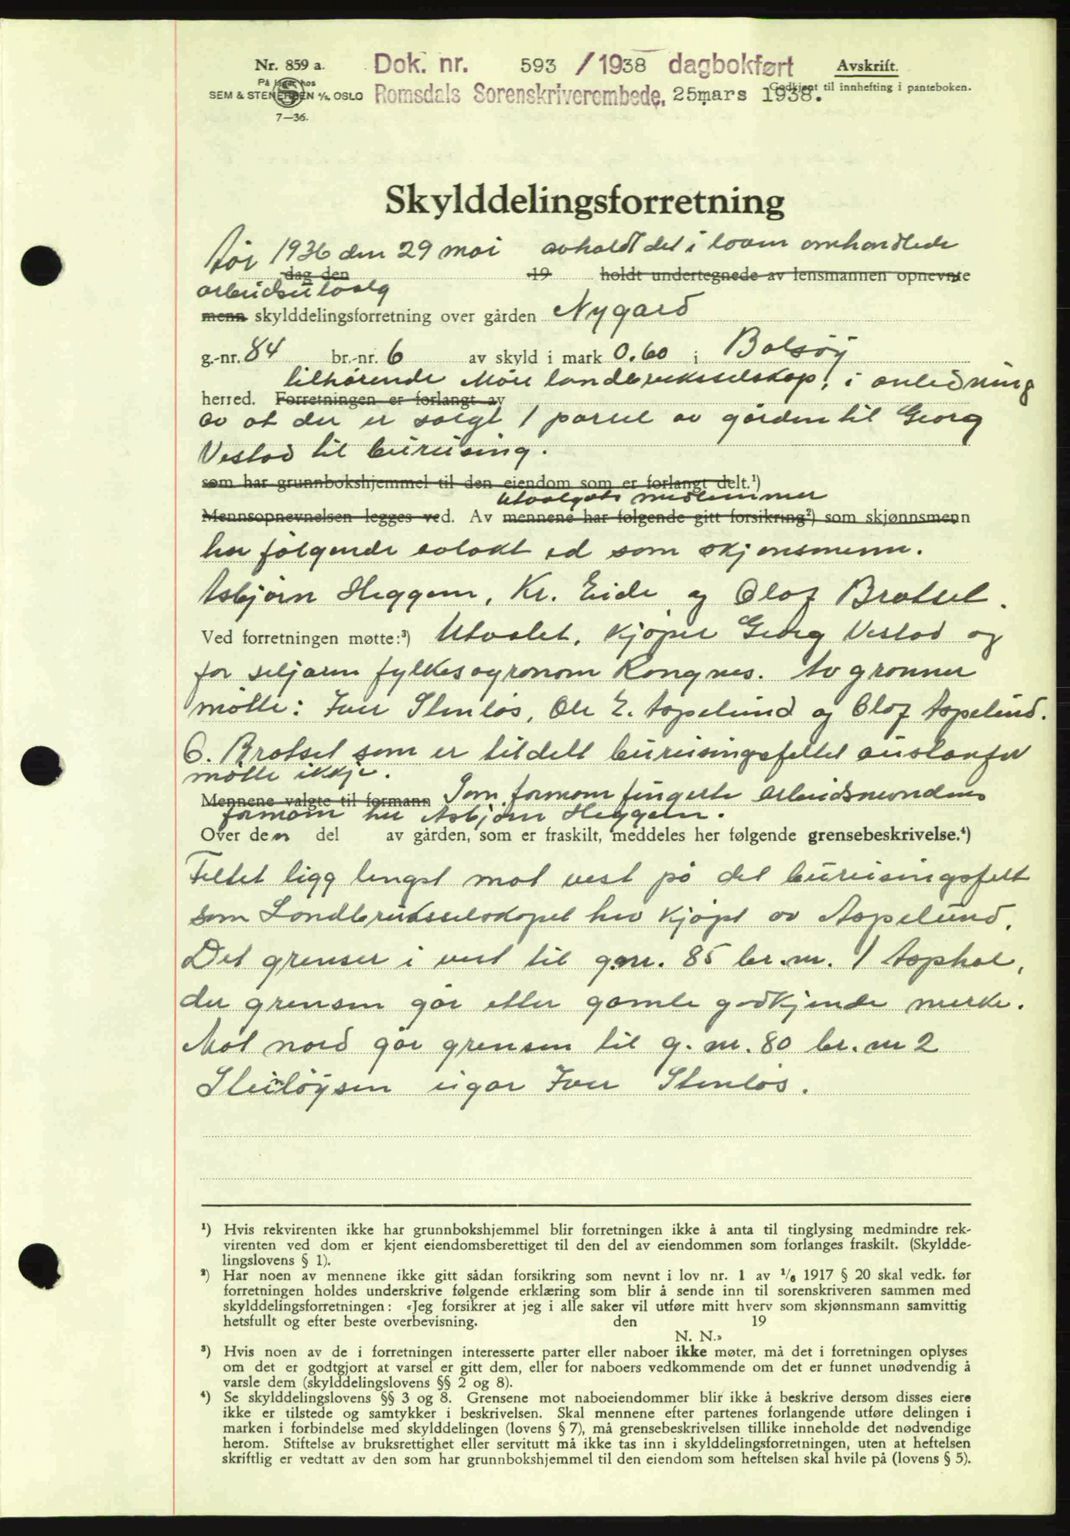 Nr. 859 a.
Dok. nr. 593 /1938 dagbokført
Avskrift.
På lager hos
SEM & STENERSEN A/S, OSLO
Romsdals Sorenskriverembede, 25 mars 1938.
Godkjent til innhefting i panteboken.
7—36.
Skylddelingsforretning
År 1936 den 29 mai avholdt det i loven omhandlede
dag den 19 holdt undertegnede av lensmannen opnevnte
arbeidsutvalg
menn skylddelingsforretning over gården Nygard
g.-nr. 84 br.-nr. 6 av skyld i mark 0.60 i Bolsøy
tilhørende Møre landbruksselskap, i anledning
herred. Forretningen er forlangt av
av at der er solgt 1 parsel av gården til Georg
Vestad til bureising.
som har grunnbokshjemmel til den eiendom som er forlangt delt.¹)
Utvalgets medlemmer
Mennsopnevnelsen legges ved. Av mennene har følgende gitt forsikring²) som skjønnsmenn
har følgende avlagt ed som skjønsmenn.
Asbjørn Heggem, Kr. Eide og Olaf Bratset.
Ved forretningen møtte:³) Utvalet, kjøper Georg Vestad og
for seljaren fylkesagronom Rongnes. Av grannar
møtte: Iver Stenløs, Ole E. Aspelund og Olaf Aspelund.
O. Bratset som er tildelt bureisingsfeltet austanfor
møtte ikkje.
Mennene valgte til formann Som formann fungerte arbeidsnevndens
formann her Asbjørn Heggem.
Over den del av gården, som er fraskilt, meddeles her følgende grensebeskrivelse.⁴)
Feltet ligg lengst mot vest på det bureisingsfelt
som Landbruksselskapet hev kjøpt av Aspelund.
Det grenser i vest til g.nr. 85 br.nr. 1 Asphol,
der grensen går etter gamle godkjende merke.
Mot nord går grensen til g. nr. 80 br. nr 2
Steinløysen eigar Iver Stenløs.
¹) Hvis rekvirenten ikke har grunnbokshjemmel blir forretningen ikke å anta til tinglysing medmindre rek-
virenten ved dom er kjent eiendomsberettiget til den del av eiendommen som forlanges fraskilt. (Skyldde-
lingslovens § 1).
²) Har noen av mennene ikke gitt sådan forsikring som nevnt i lov nr. 1 av ¹/₆ 1917 § 20 skal vedk. før
forretningen holdes underskrive følgende erklæring som blir å sende inn til sorenskriveren sammen med
skylddelingsforretningen: «Jeg forsikrer at jeg i alle saker vil utføre mitt hverv som skjønnsmann samvittig
hetsfullt og efter beste overbevisning. den 19
N. N.»
³) Hvis noen av de i forretningen interesserte parter eller naboer ikke møter, må det i forretningen oplyses
om det er godtgjort at varsel er gitt dem, eller for naboers vedkommende om det er funnet unødvendig å
varsle dem (skylddelingslovens §§ 2 og 8).
⁴) Se skylddelingslovens §§ 3 og 8. Grensene mot naboeiendommer blir ikke å beskrive dersom disses eiere
ikke er tilstede og samtykker i beskrivelsen. Skal mennene efter partenes forlangende utføre delingen i
marken i forbindelse med skylddelingen (lovens § 7), må grensebeskrivelsen tillike inneholde det nødvendige
herom. Stiftelse av bruksrettighet eller servitutt må ikke tas inn i skylddelingsforretningen, uten at heftelsen
skriftlig er vedtatt av den som har grunnbokshjemmel til den eiendom som heftelsen skal hvile på (lovens § 5).